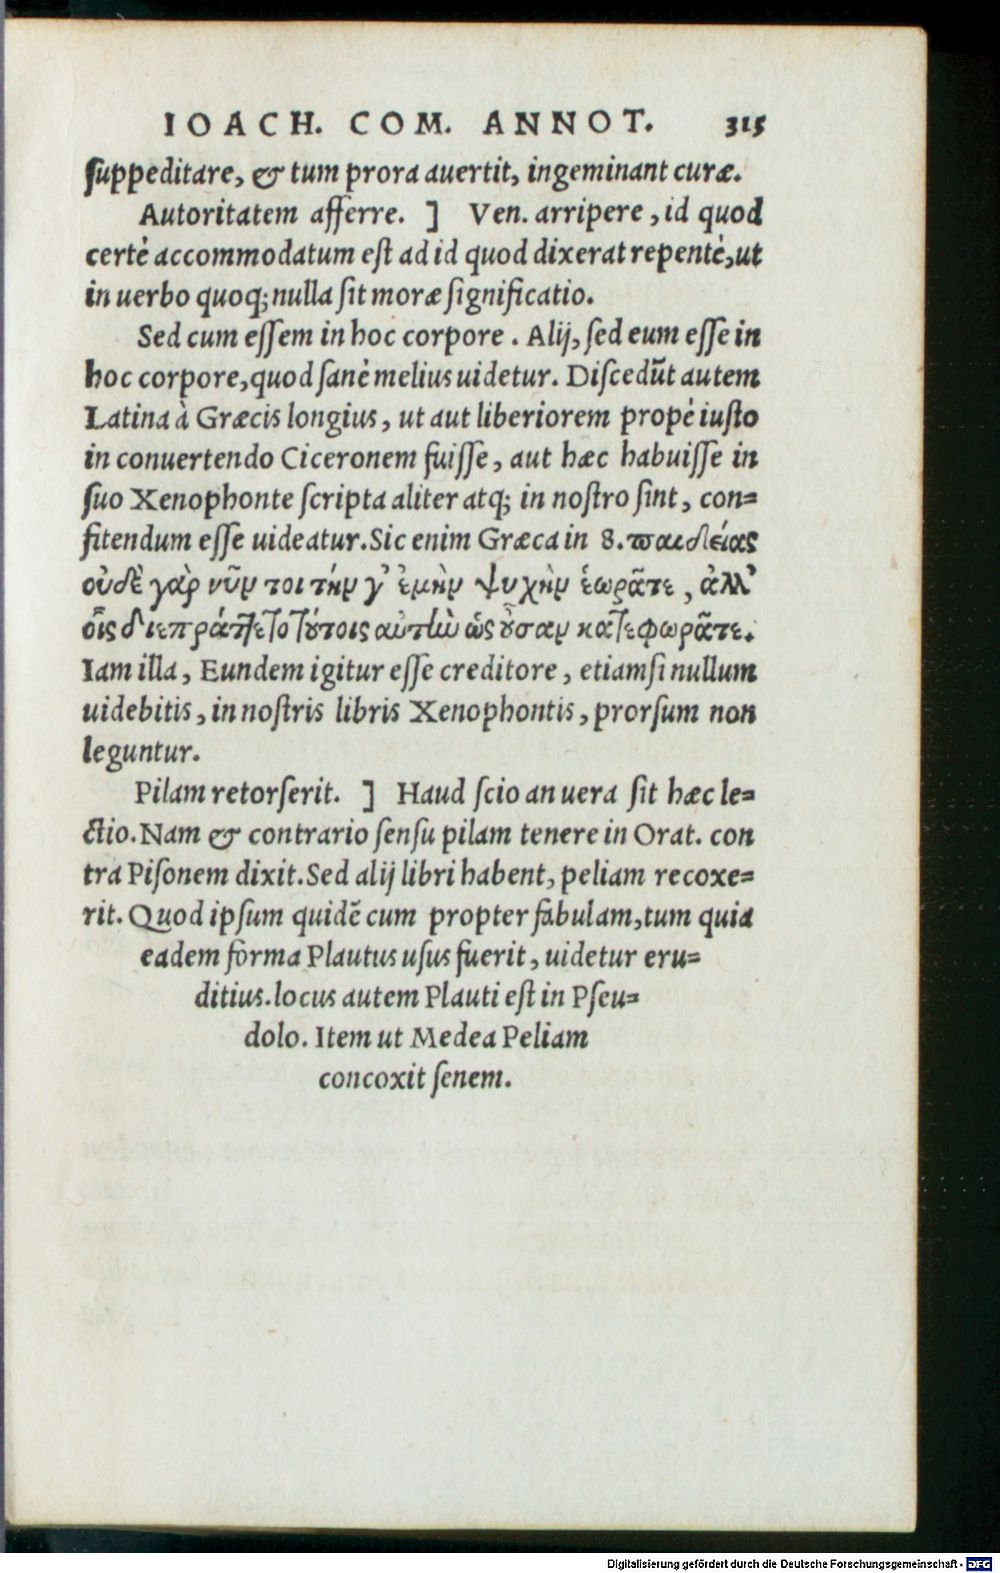 IOACH. COM. ANNOT. 315
ſuppeditare, & tum prora auertit, ingeminant curæ.
Autoritatem afferre. ] Ven. arripere, id quod
certè accommodatum eſt ad id quod dixerat repentè, ut
in uerbo quoq; nulla ſit moræ ſignificatio.
Sed cum eſſem in hoc corpore. Alij, ſed eum eſſe in
hoc corpore, quod ſanè melius uidetur. Diſcedūt autem
Latina à Græcis longius, ut aut liberiorem propè iuſto
in conuertendo Ciceronem fuiſſe, aut hæc habuiſſe in
ſuo Xenophonte ſcripta aliter atq; in noſtro ſint, con=
fitendum eſſe uideatur. Sic enim Græca in 8. παιδείας
οὐδὲ γὰρ νῦν τοι τήν γ’ ἐμὴν ψυχὴν ἑωρᾶτε, ἀλλ’
οἷς διεπράττετο τούτοις αὐτὴν ὡς οὖσαν κατεφωρᾶτε.
Iam illa, Eundem igitur eſſe creditore, etiamſi nullum
uidebitis, in noſtris libris Xenophontis, prorſum non
leguntur.
Pilam retorſerit. ] Haud ſcio an uera ſit hæc le=
ctio. Nam & contrario ſenſu pilam tenere in Orat. con
tra Piſonem dixit. Sed alij libri habent, peliam recoxe=
rit. Quod ipſum quidē cum propter fabulam, tum quia
eadem forma Plautus uſus fuerit, uidetur eru=
ditius. locus autem Plauti eſt in Pſeu=
dolo. Item ut Medea Peliam
concoxit ſenem.
Digitalisierung gefördert durch die Deutsche Forschungsgemeinschaft - DFG